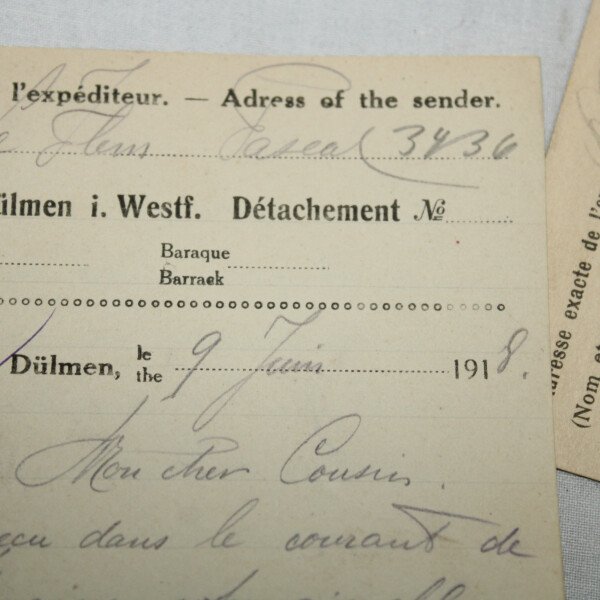 l'expéditeur. — Adress of the sender.
Pascal 3436
ülmen i. Westf. Détachement №
Baraque
Barraek
Dülmen, le
the 9 Juin 1918.
Mon cher Cousin.
eçu dans le courant de
adresse exacte de l'ex
(Nom et